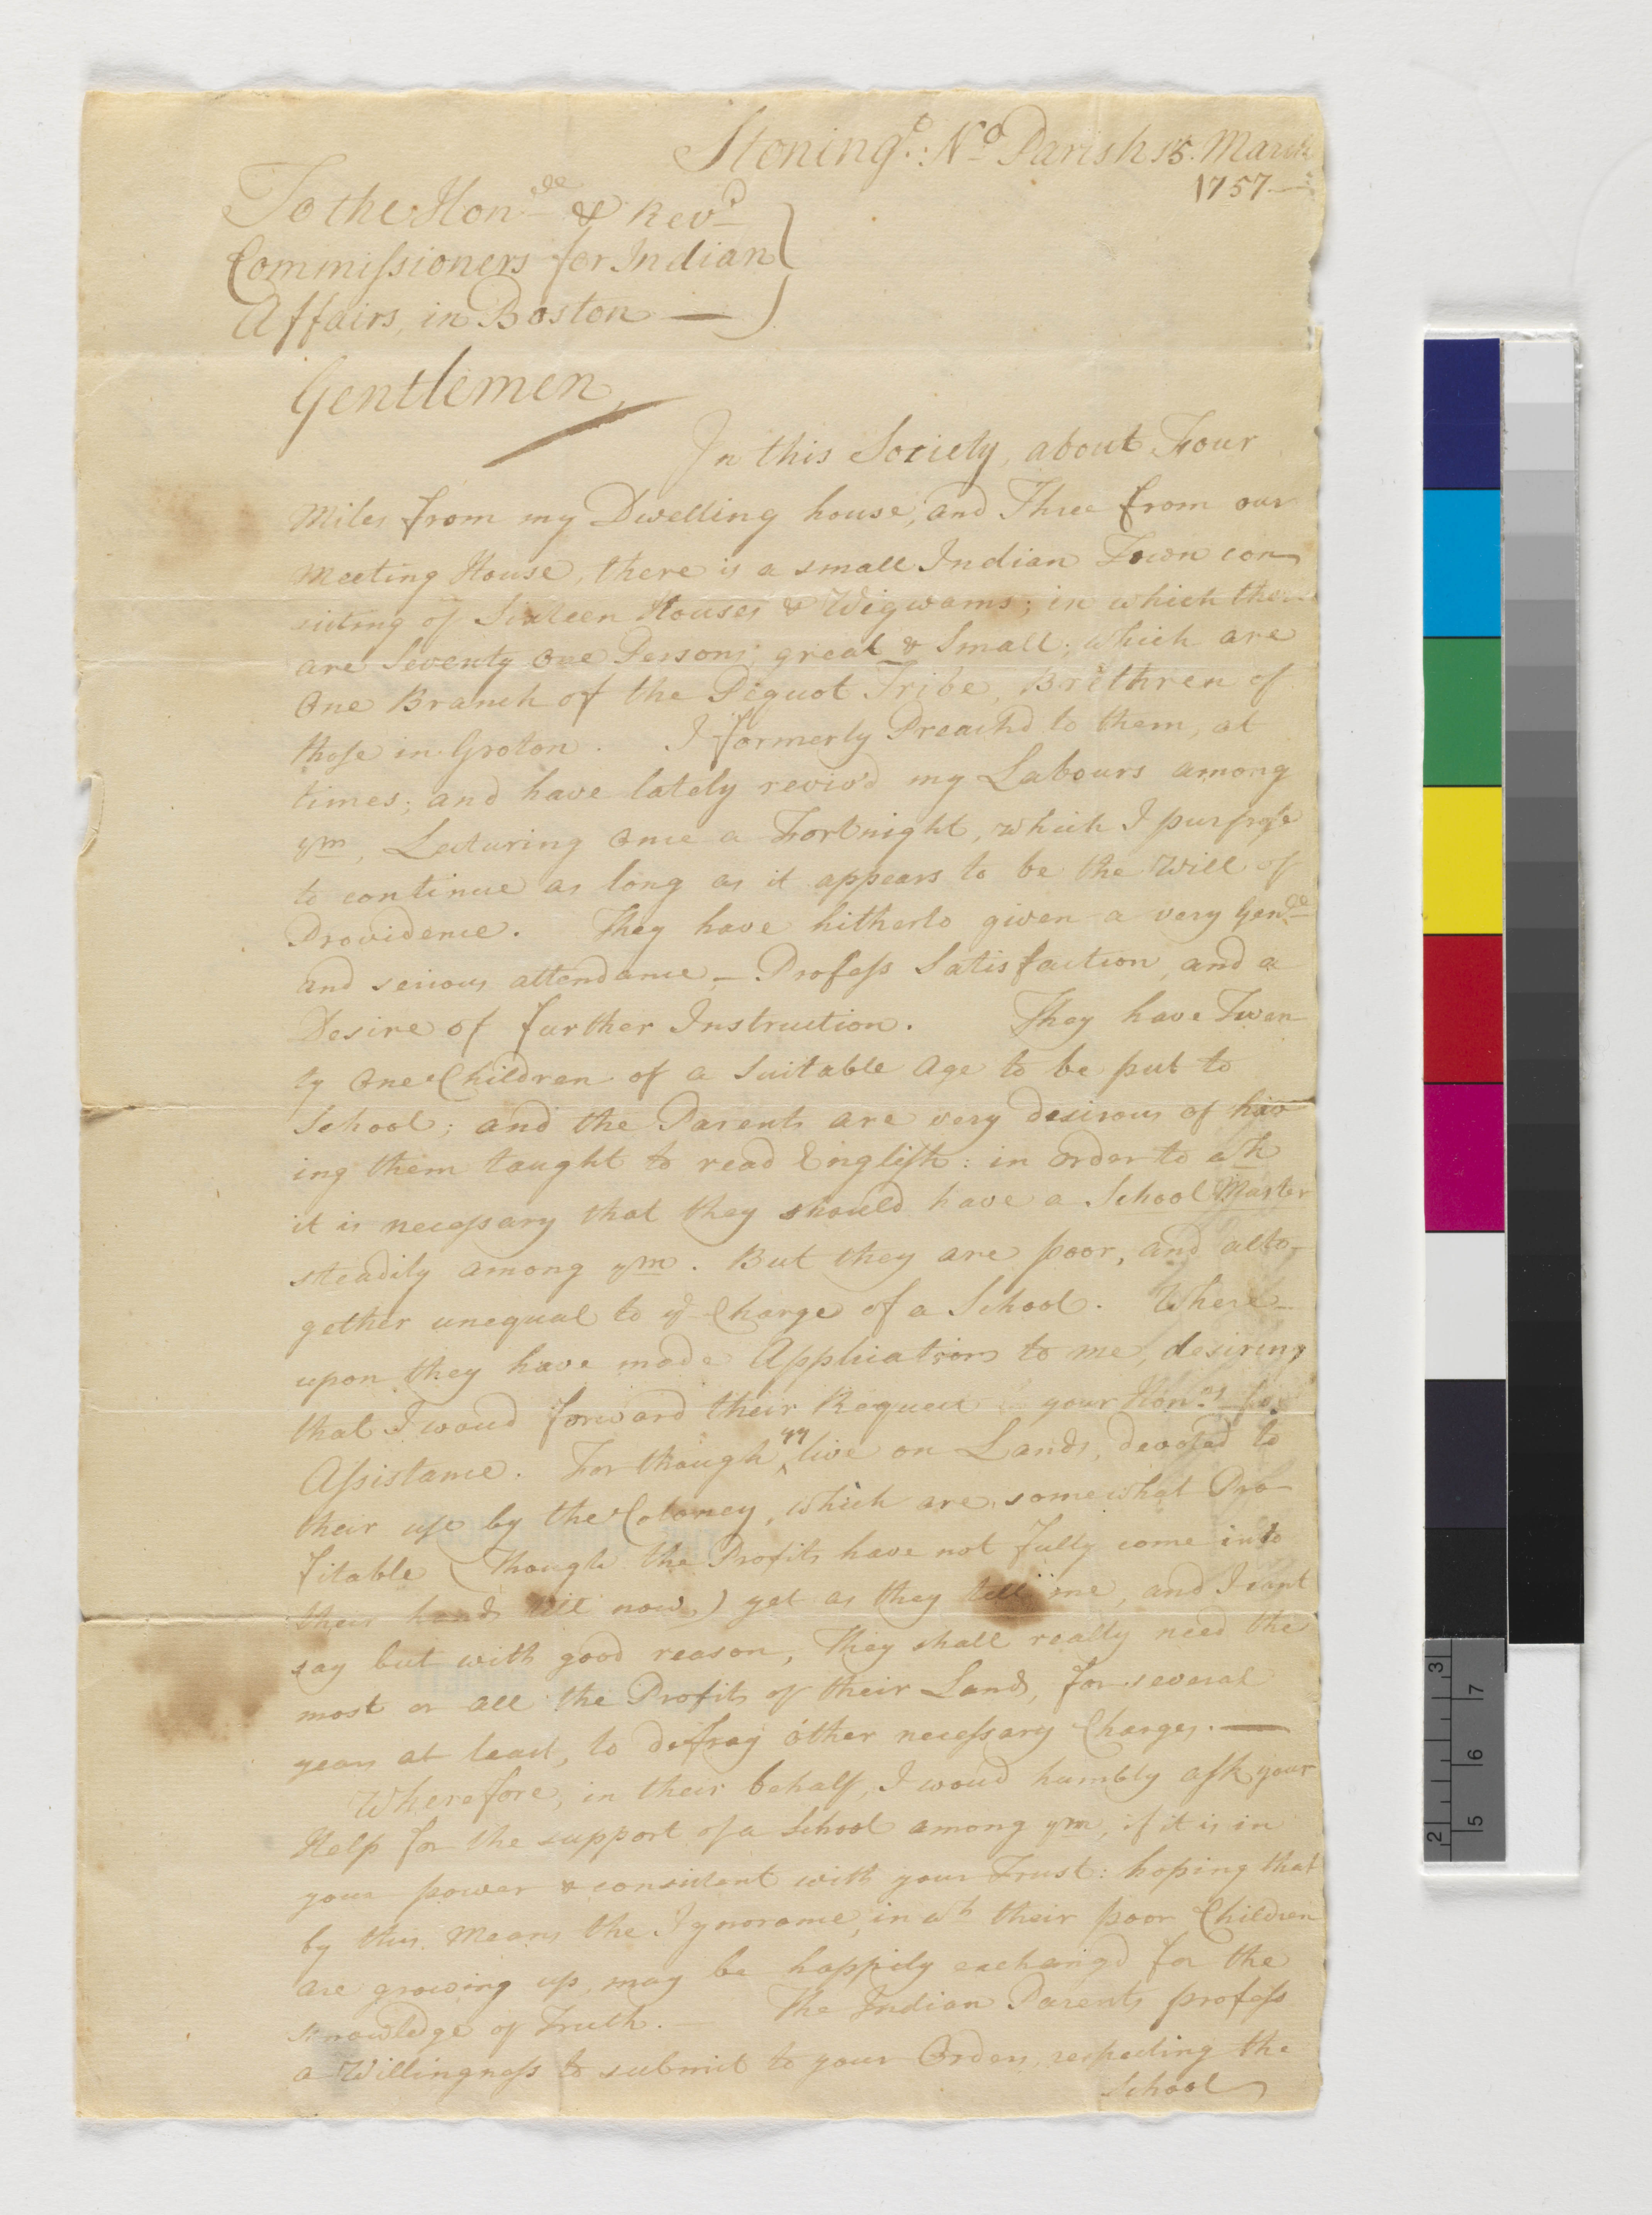 Stoningt: No Parish 15. March
1757—
To the Honble & Revd
Commissioners for Indian
Affairs, in Boston —
Gentlemen,
In this Society, about Four
Miles from my Dwelling house, and Three from our
Meeting House, there is a small Indian Town con
sisting of Sixteen Houses & Wigwams; in which there
are Seventy One Persons great & Small; which are
One Branch of the Pequot Tribe, Brethren of
those in Groton. I formerly Preach'd to them, at
times; and have lately reviv'd my Labours among
ym, Lecturing Once a Fortnight, which I purpose
to continue as long as it appears to be the Will of
Providence. They have hitherto given a very Genll
and serious attendance, — Profess Satisfaction, and a
Desire of further Instruction. They have Twen
ty One Children of a Suitable Age to be put to
School; and the Parents are very desirous of hav
ing them taught to read English: in order to wh
it is necessary that they should have a School Master
steadily among ym. But they are poor, and alto-
gether unequal to ye Charge of a School. Where-
upon they have made Application to me, desiring
that I woud forward their Request to your Honrs for
Assistance. For though yy live on Lands, devoted to
their use by the Coloney, which are somewhat Pro-
fitable (Though the Profits have not fully come into
their hands till now,) yet as they tell me, and I cant
say but with good reason, They shall really need the
most or all the Profits of their Lands, for several
years at least, to defray other necessary Charges. —
Wherefore, in their behalf, I woud humbly ask your
Help for the support of a School among ym, if it is in
your power & consistent with your Trust: hoping that
by this Means the Ignorance, in wh their poor Children
are growing up, may be happily exchang'd for the
Knowledge of Truth. — The Indian Parents profess
a Willingness to submit to your Orders, respecting the
School
2 3
5 6 7